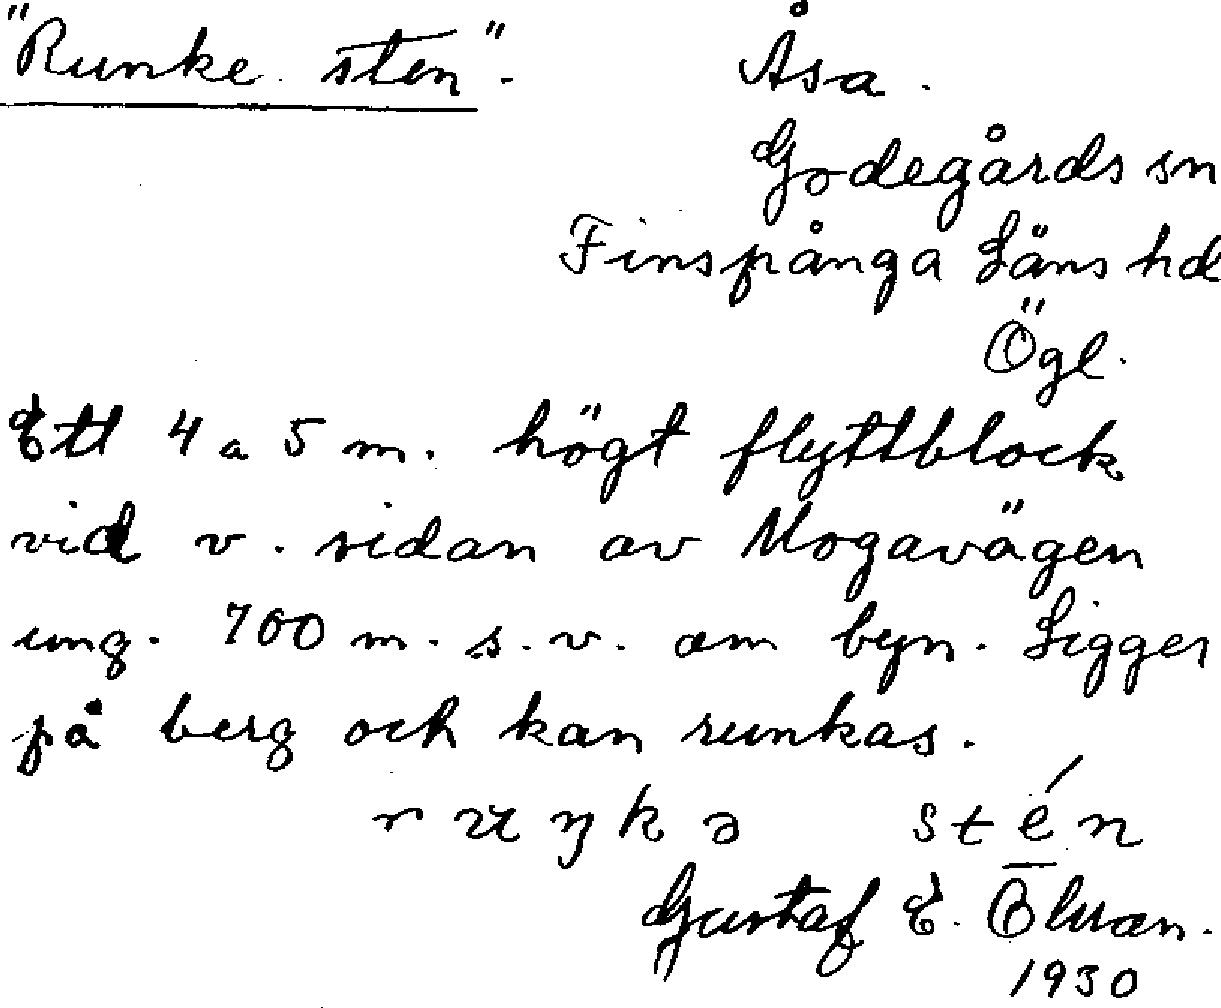 "Runke sten". Åsa.
Godegårds sn
Finspånga Läns hd
Ögl.
Ett 4 a 5 m. högt flyttblock
vid v. sidan av Mogavägen
ung. 700 m. s.v. om byn. Ligger
på berg och kan runkas.
stén
Gustaf E.
1930